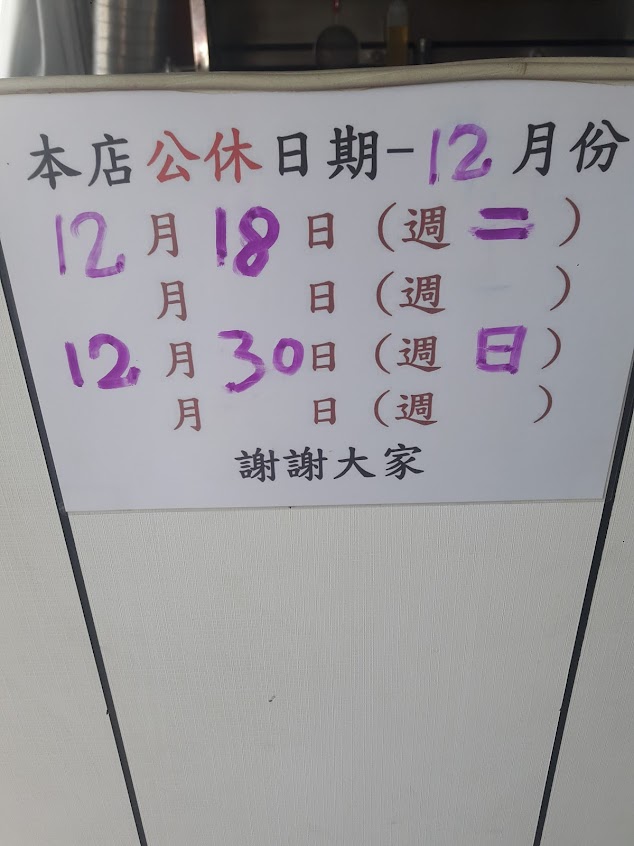 本店公休日期-12月份
12月18日(週二)
月 日(週 )
12月30日(週日)
月 日(週 )
謝謝大家